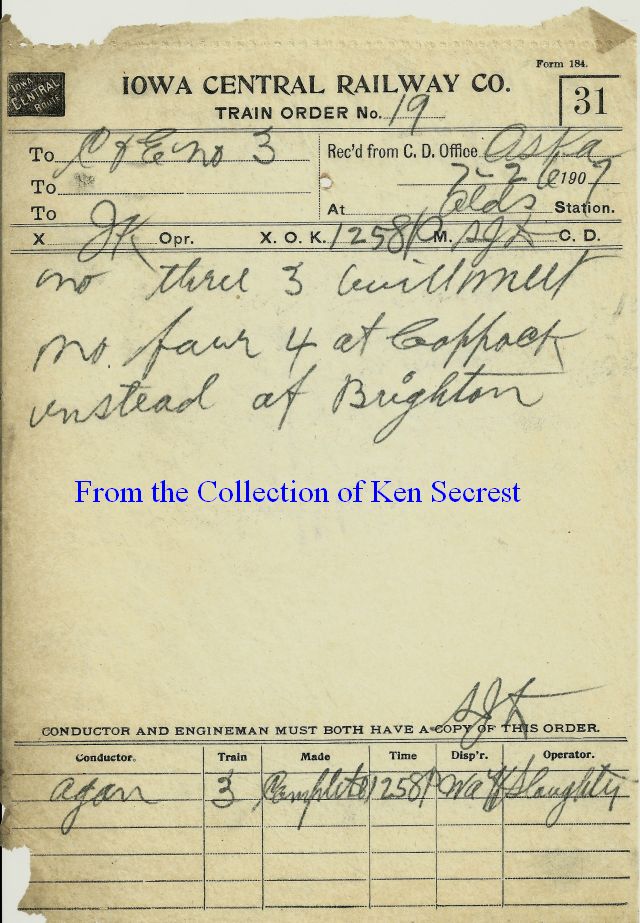 Form 184.
IOWA CENTRAL ROUTE
IOWA CENTRAL RAILWAY CO.
TRAIN ORDER No. 19
31
To C & E no 3
Rec'd from C. D. Office Oska
To
7-26 1907
To
At Olds Station.
X JK Opr. X. O. K. 1258 P M. SJK C. D.
no three 3 will meet
no. four 4 at Coppock
instead of Brighton
From the Collection of Ken Secrest
SJK
CONDUCTOR AND ENGINEMAN MUST BOTH HAVE A COPY OF THIS ORDER.
Conductor. Train Made Time Disp'r. Operator.
agan 3 Complete 1258P